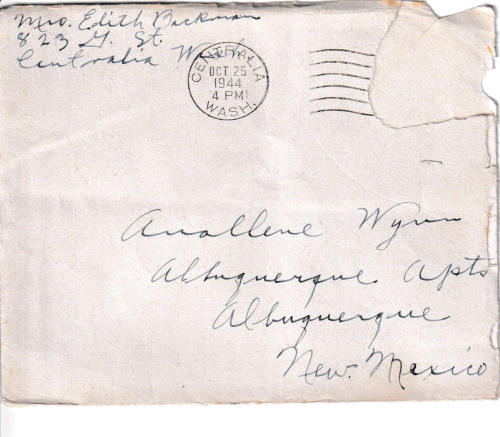 Mrs. Edith Backman
823 G. St.
Centralia Wash.
CENTRALIA
OCT 25
1944
4 PM
WASH.
Anollene Wynn
Albuquerque Apts
Albuquerque
New Mexico